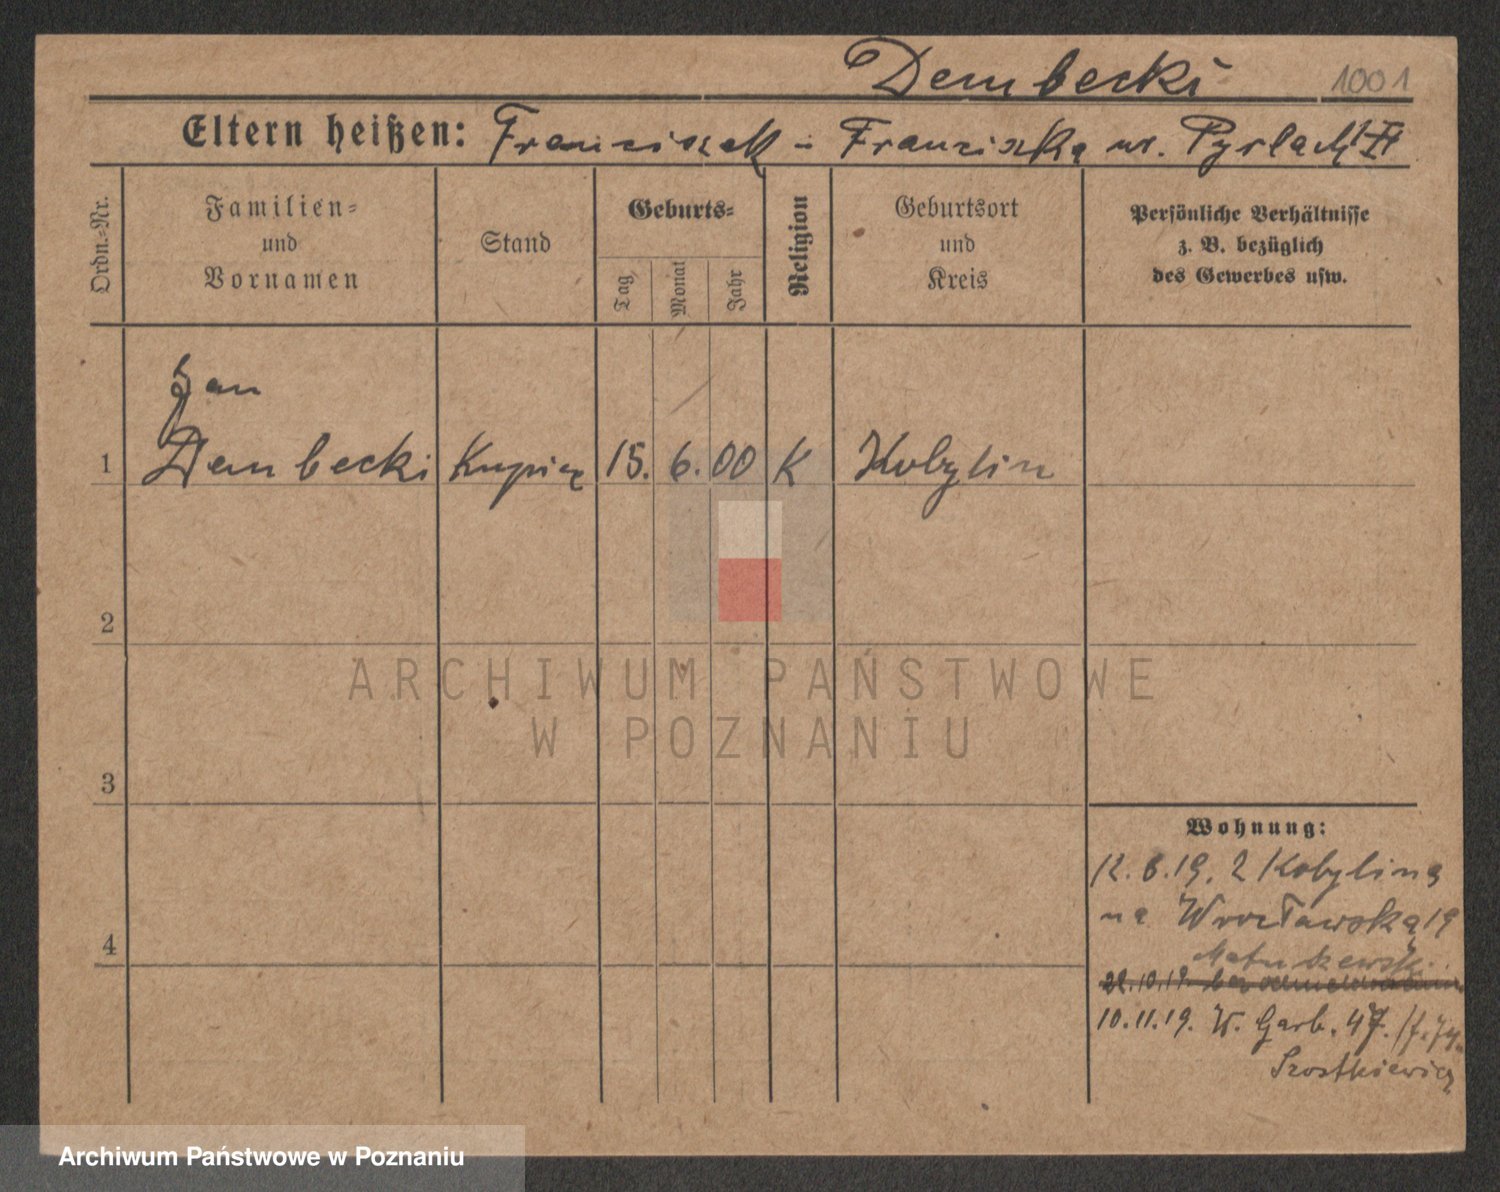 Dembecki 1001
Eltern heißen: Franciszek i Franciszka ur.
Ordn.-Nr.
Familien-
und
Vornamen
Stand
Geburts-
Tag
Monat
Jahr
Religion
Geburtsort
und
Kreis
Persönliche Verhältnisse
z. B. bezüglich
des Gewerbes usw.
Jan
1 Dembecki Kupiec 15. 6. 00 K Kobylin
2
3
4
ARCHIWUM PAŃSTWOWE
W POZNANIU
Wohnung:
12. 6. 19. z Kobylina
na Wrocławską 19
10. 11. 19. W. Garb. 47.
Szostkiewicz
Archiwum Państwowe w Poznaniu